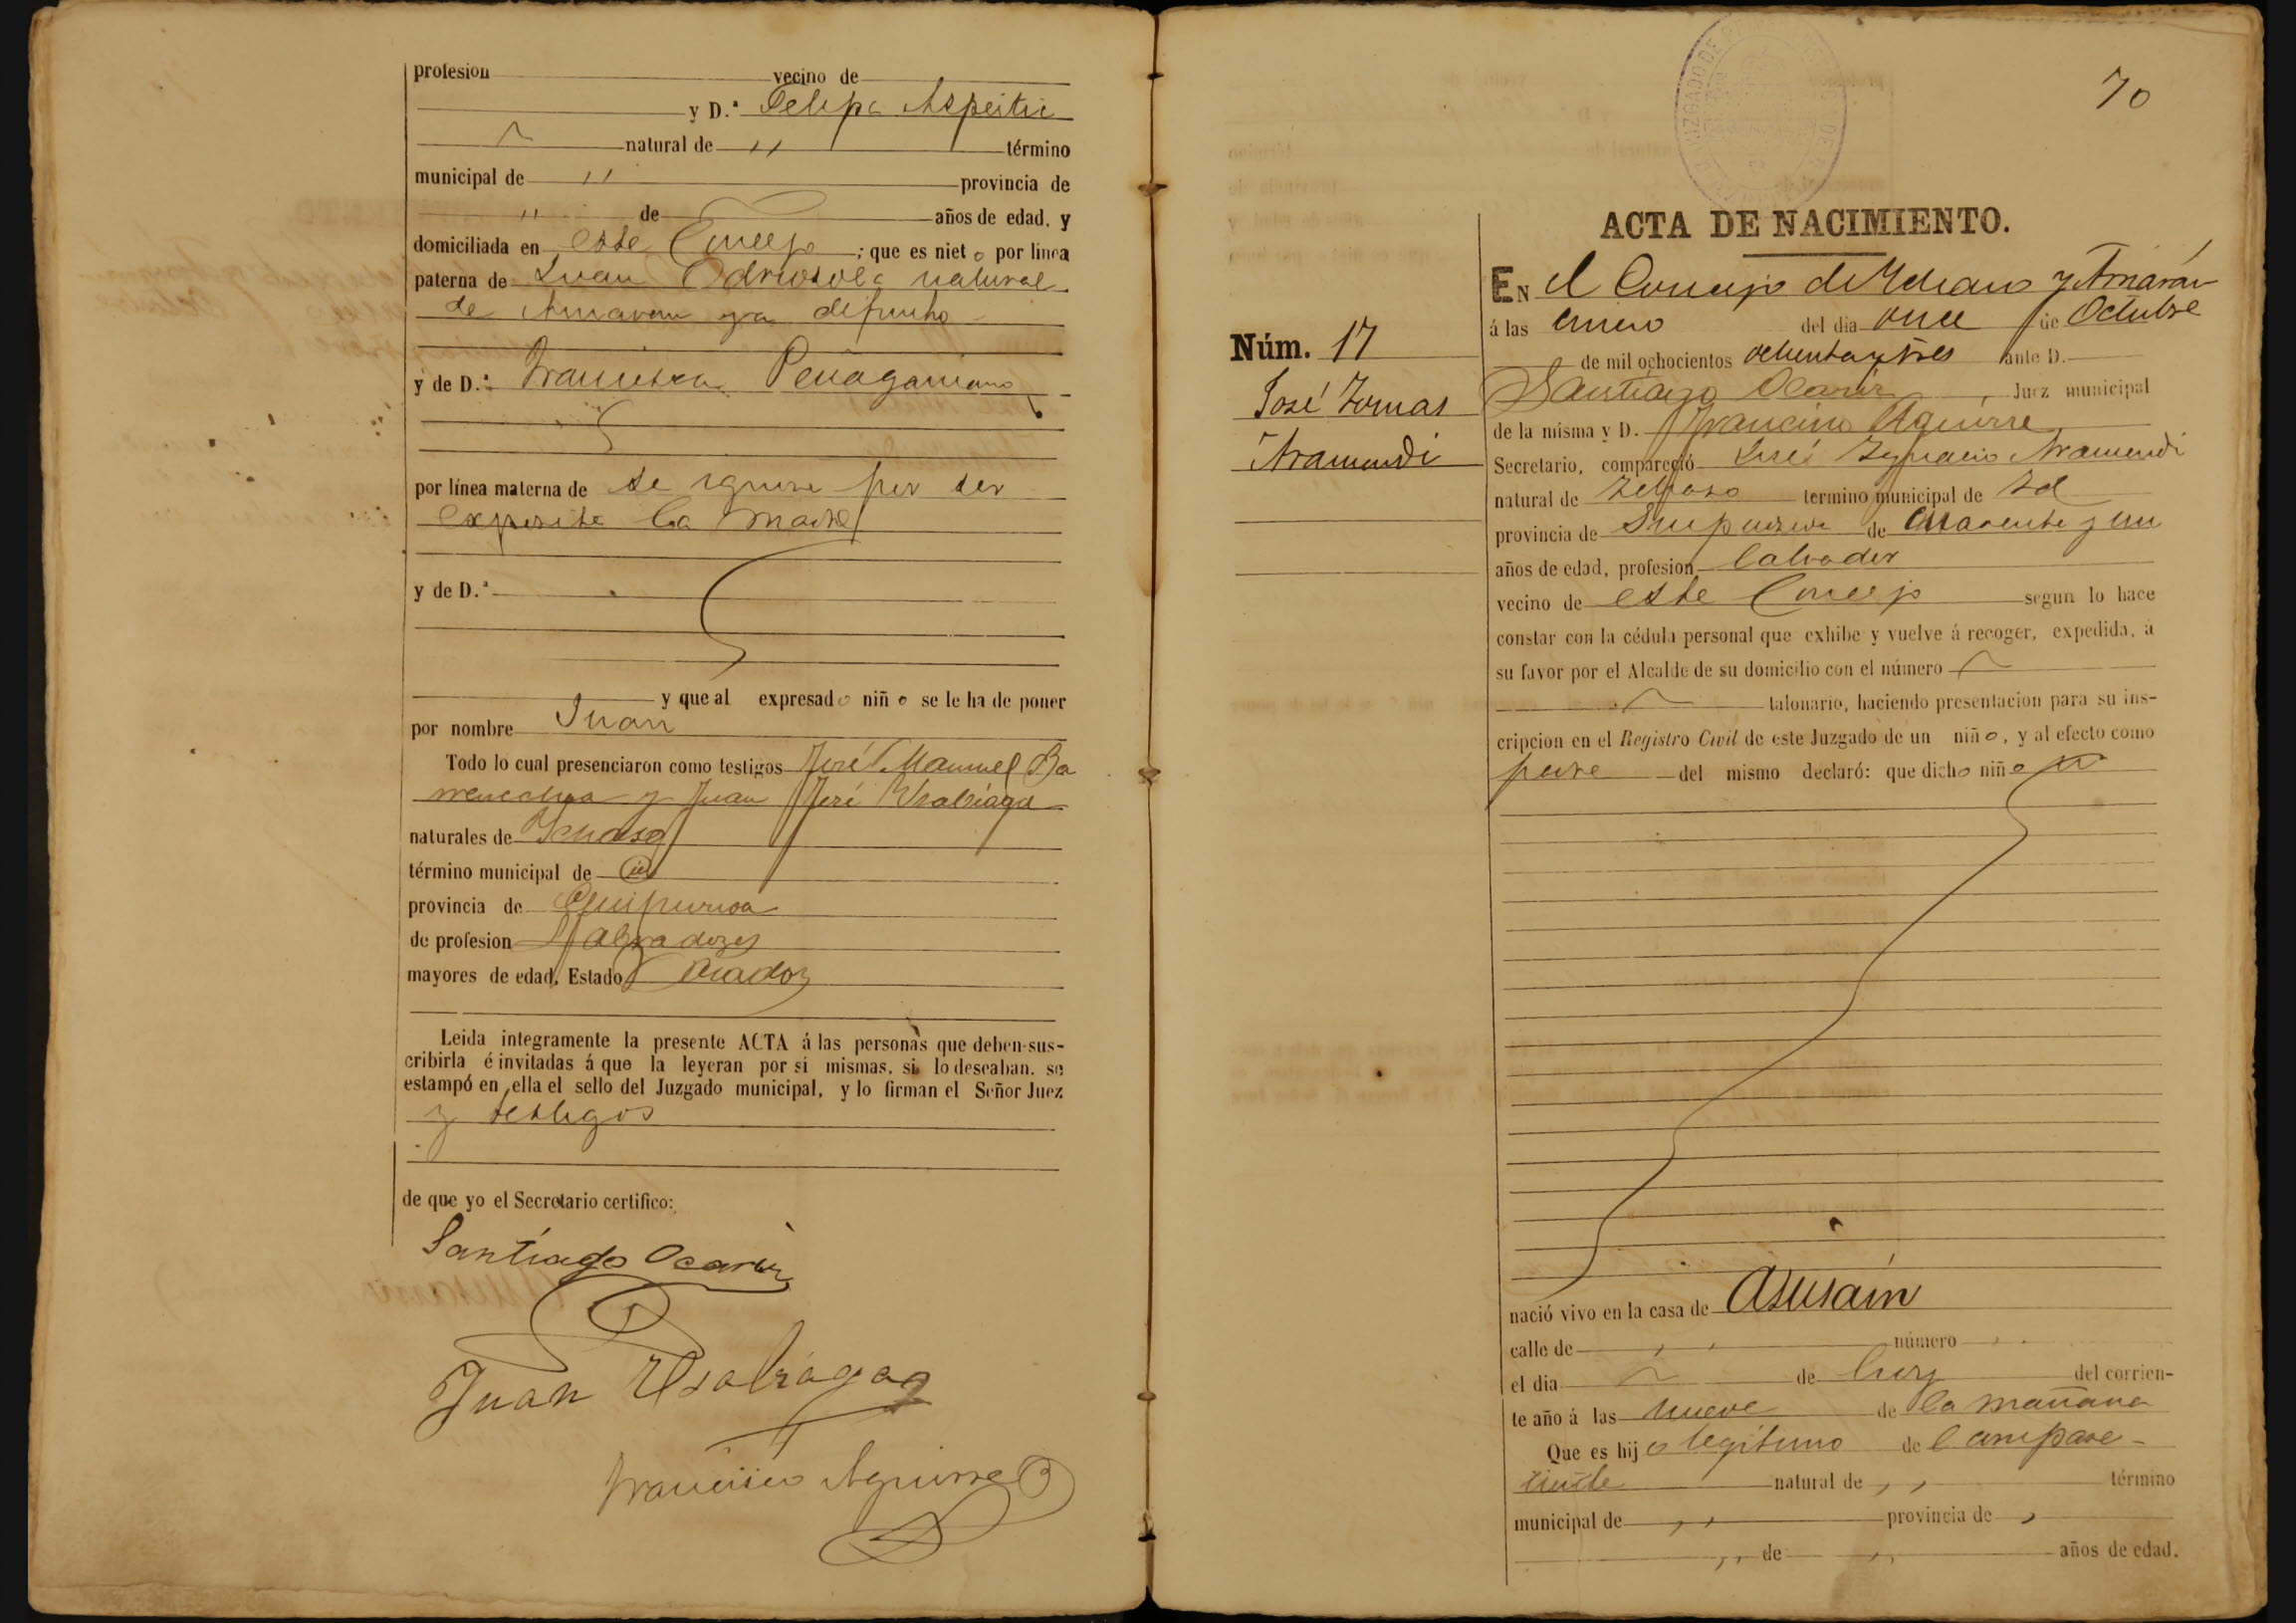 profesion vecino de
y D.ª Felipa Aspeitia
natural de " término
municipal de " provincia de
" de años de edad, y
domiciliada en este Concejo ; que es nieto por linea
paterna de Juan Odriosola natural
de Amavan ya difunto
y de D.ª Francisca Peñagaricano
por línea materna de se ignora por ser
exposita la madre
y de D.ª
y que al expresado niño se le ha de poner
por nombre Juan
Todo lo cual presenciaron como testigos José Manuel Ba
rrenechea y Juan José Usabiaga
naturales de
término municipal de id
provincia de Guipuzcoa
de profesion Labradores
mayores de edad, Estado Casados
Leida integramente la presente ACTA á las personas que deben sus-
cribirla é invitadas á que la leyeran por si mismas, si lo deseaban, se
estampó en ella el sello del Juzgado municipal, y lo firman el Señor Juez
y testigos
de que yo el Secretario certifico:
Santiago Ocariz
Juan Usabiaga
Francisco Aguirre
70
ACTA DE NACIMIENTO.
EN el Concejo de y Amavan
á las cinco del dia once de Octubre
de mil ochocientos ochenta y tres ante D.
Santiago Ocariz , Juez municipal
de la misma y D. Francisco Aguirre
Secretario, compareció José Ygnacio Aramendi
natural de termino municipal de Id
provincia de Guipuzcoa de cuarenta y un
años de edad, profesion labrador
vecino de este Concejo segun lo hace
constar con la cédula personal que exhibe y vuelve á recoger, expedida, á
su favor por el Alcalde de su domicilio con el número
talonario, haciendo presentacion para su ins-
cripcion en el Registro Civil de este Juzgado de un niño, y al efecto como
padre del mismo declaró: que dicho niño
Núm. 17
José Tomas
Aramendi
nació vivo en la casa de Asusain
calle de " número "
el dia de hoy del corrien-
te año á las nueve de la mañana
Que es hijo legitimo del compare-
ciente natural de " término
municipal de " provincia de "
" de " años de edad.